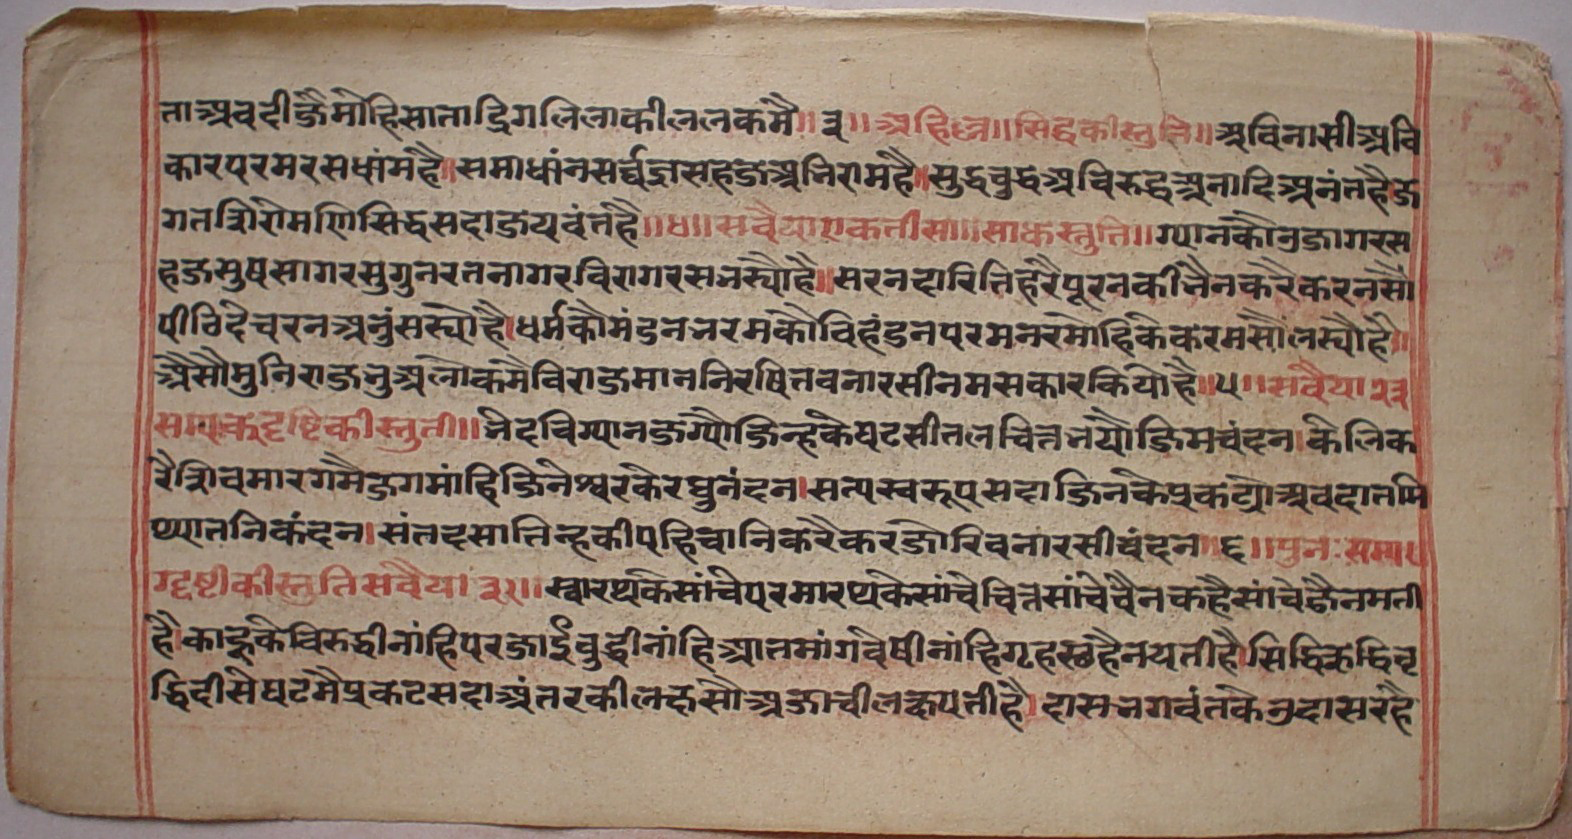 ताअवदीजैमोहिसाताद्रिगलिलाकीललकमै॥३॥अडिल्ल॥सिद्धकीस्तुति॥अविनासीअवि
कारपरमरसधांमहै॥समाधांनसर्वंगसहजअभिरामहै॥सुद्धबुद्धअविरुद्धअनादिअनंतहैज
गतशिरोमणिसिद्धसदाजयवंतहै॥४॥सवैयाएकतीसा॥साधस्तुति॥ग्यानकौउजागरस
हजसुषसागरसुगुनरतनागरविरागरसभस्यौहै॥सरनकीभैनकरैकरनसौं
पीठिदेचरनअनुंसस्योहै।धर्मकौमंडनभरमकौविहंडनपरमनरमोहिकेकरमसौंलस्यौहै॥
औसौमुनिराजभुअलोकमैविराजमाननिरषितवनारसीनमसकारकियोहै॥५॥सवैया२३
सम्यकदृष्टिकीस्तुती॥भेदविग्यानजग्यौजिन्हकेघटसीतलचितभयौजिमचंदन।केलिक
रैशिवमारगमैजगमांहिजिनेश्वरकेरघुनंदन।सत्यस्वरूपसदाजिनकैप्रकट्योअवदातमि
थ्यातनिकंदन।संतदसातिन्हकीपहिचानिकरैकरजोरिवनारसीवंदन॥६॥पुनःसम्य
ग्दृष्टीकीस्तुतिसवैया३१॥स्वारथकेसांचेपरमारथकेसांचेचित्तसांचेवैनकहैसांचेजैनमती
है।काहूकेविरुद्धीनांहिपरजाईबुद्धीनांहिआतमांगवेषीनांहिगृहस्तहैनयतीहै।सिद्धिऋद्धिवृ
द्धिदीसैघटमैप्रकटसदाअंतरकीलछसौअजाचीलछपतीहै।दासभगवंतकैउदासरहै